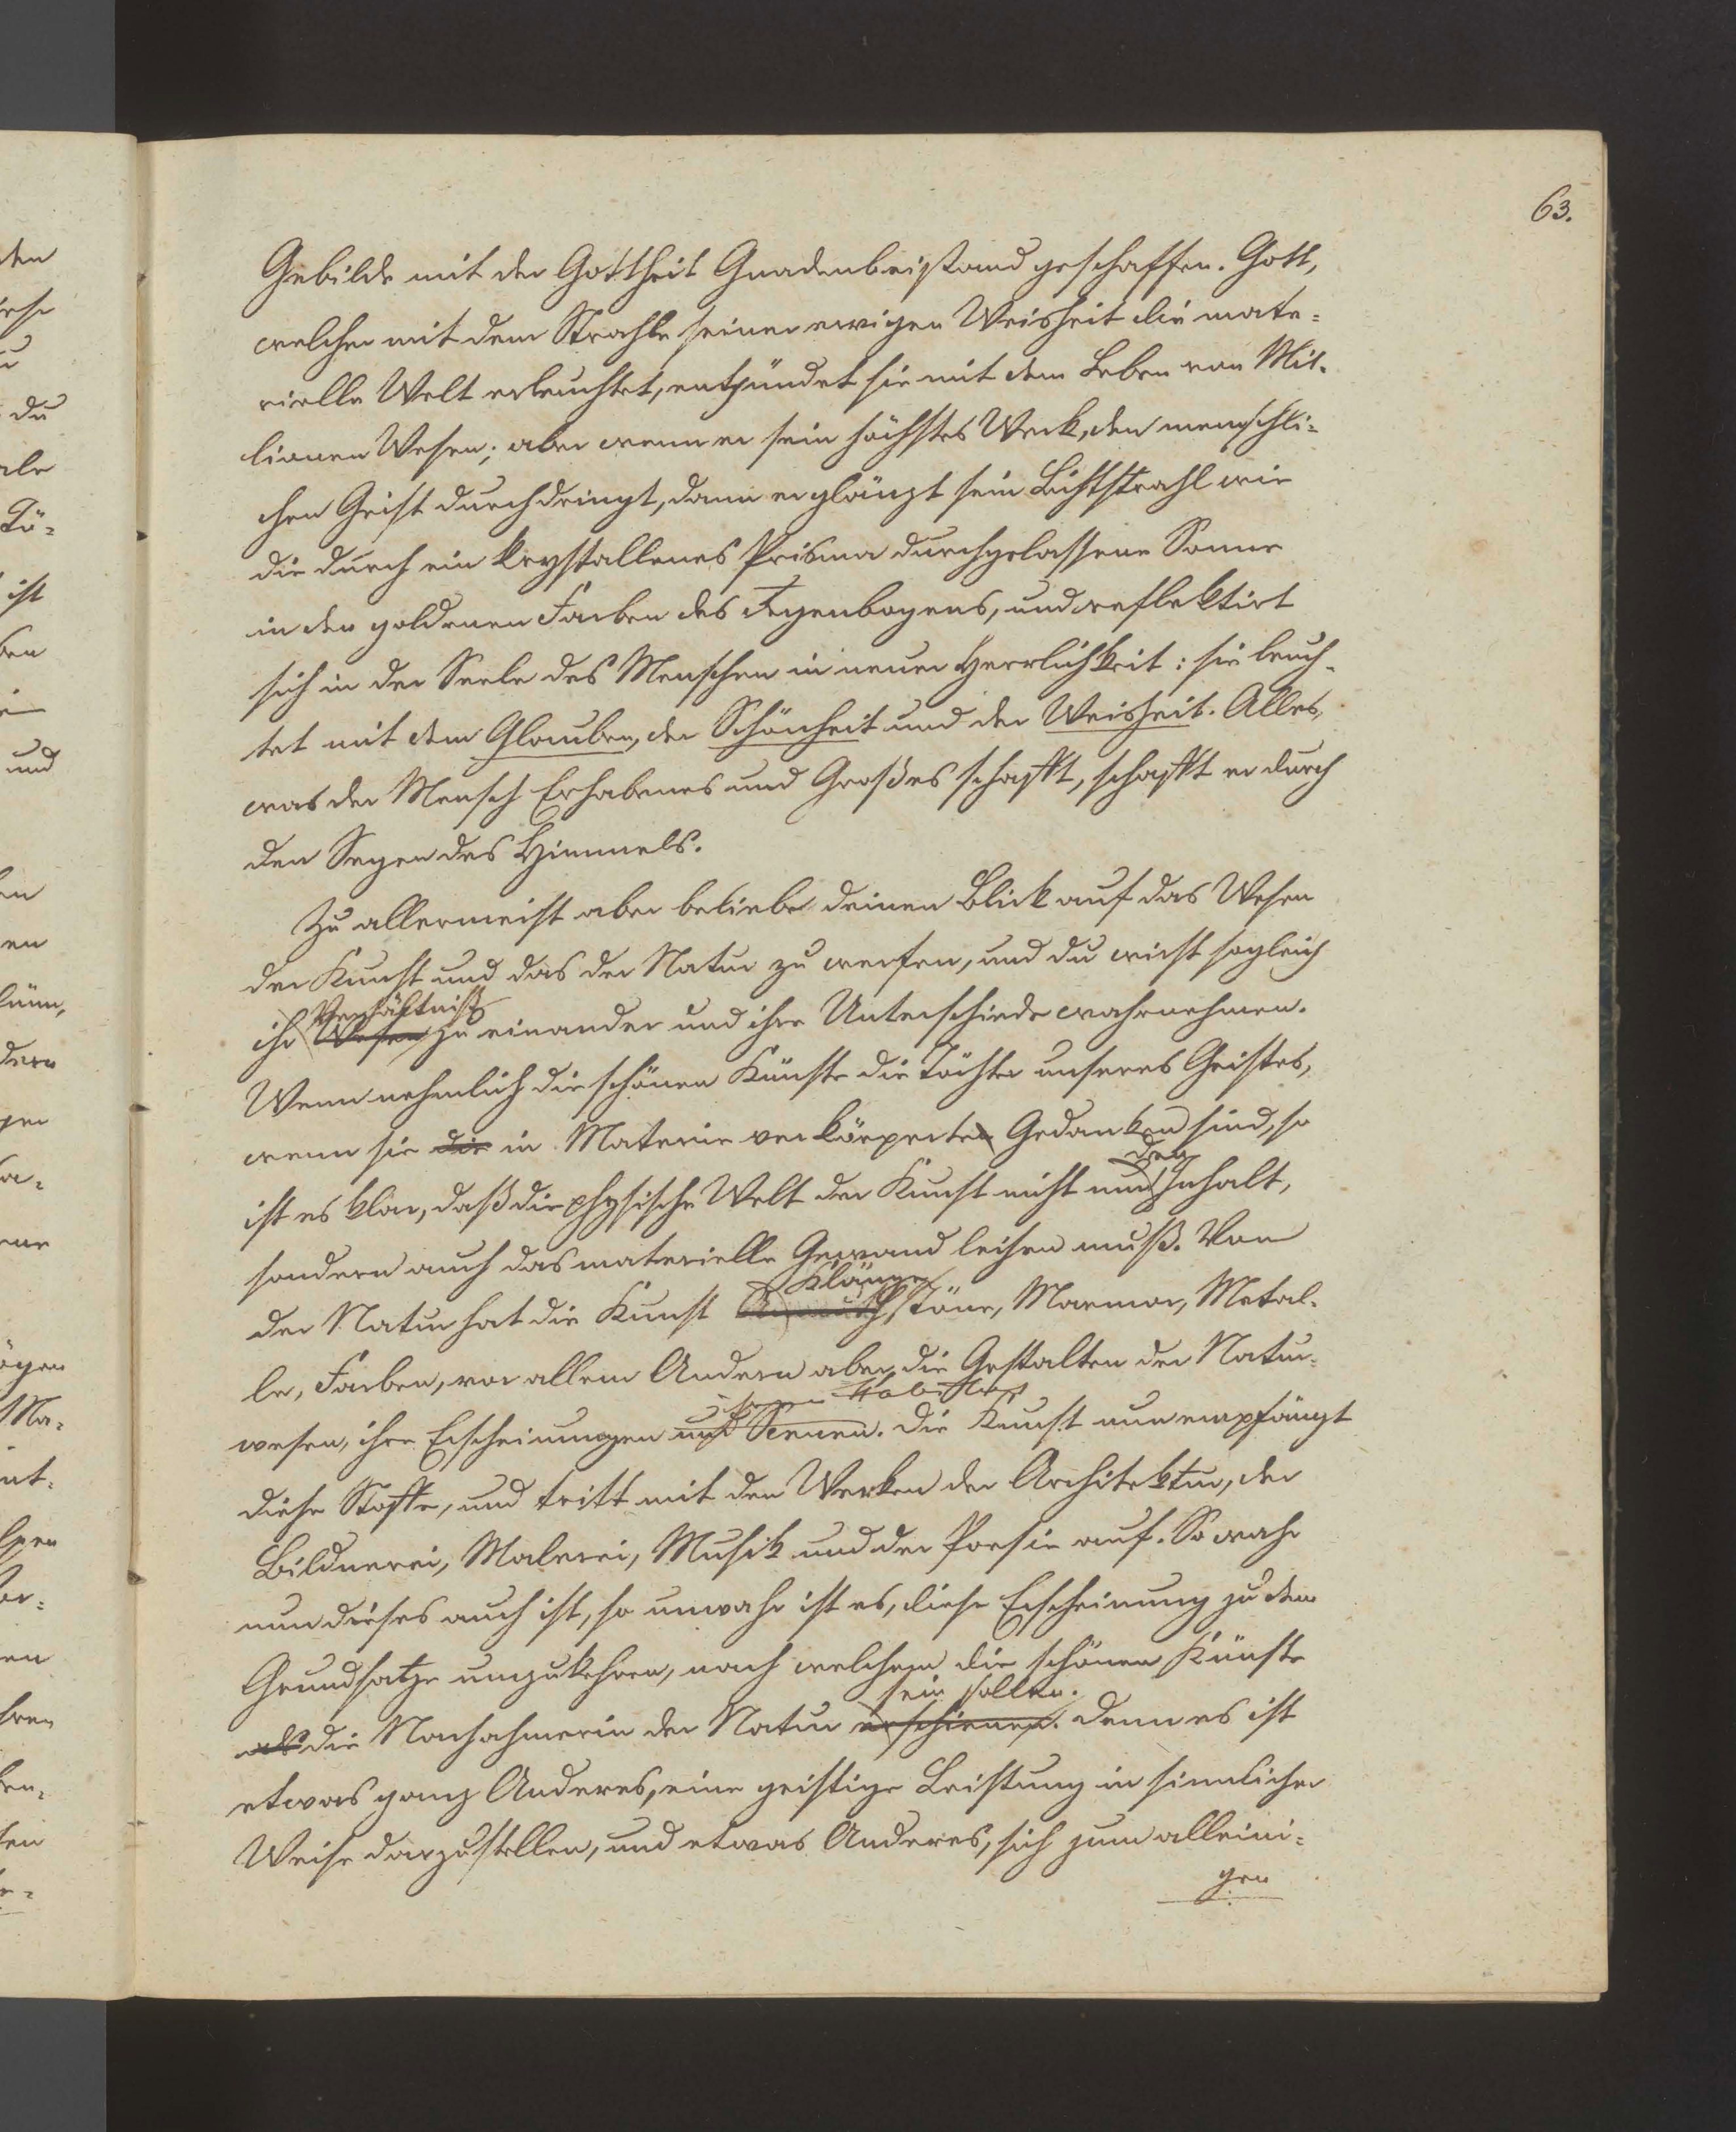 63.
Gebilde mit der Gottheit Gnadenbeistand geschaffen. Gott,
welcher mit dem Strahle seiner ewigen Weisheit die mate-
rielle Welt erleuchtet, entzündet sie mit dem Leben von Mil-
lionen Wesen; aber wenn er sein höchstes Werk, den menschli-
chen Geist durchdringt, dann erglänzt sein Lichtstrahl wie
die durch ein krystallenes Prisma durchgelassene Sonne
in den goldenen Farben des Regenbogens, und reflektirt
sich in der Seele des Menschen in neuer Herrlichkeit: sie leuch-
tet mit dem Glauben, der Schönheit und der Weisheit. Alles,
was der Mensch Erhabenes und Großes schafft, schafft er durch
den Segen des Himmels.
Zu allermeist aber beliebe deinen Blick auf das Wesen
der Kunst und das der Natur zu werfen, und du wirst sogleich
Verhältniß
ihr Wesen zu einander und ihre Unterschiede wahrnehmen.
Wenn nehmlich die schönen Künste die Töchter unseres Geistes,
wenn sie die in Materie verkörperten Gedanken sind, so
den
ist es klar, daß die physische Welt der Kunst nicht nur Inhalt,
sondern auch das materielle Gewand leihen muß. Von
Klänge
der Natur hat die Kunst Töne, Marmor, Metal-
le, Farben, vor allem Andern aber die Gestalten der Natur-
wesen, ihre Erscheinungen und Scenen. Die Kunst nun empfängt
diese Stoffe, und tritt mit den Werken der Architektur, der
Bildnerei, Malerei, Musik und der Poesie auf. So wahr
nun dieses auch ist, so unwahr ist es, diese Erscheinung zu dem
Grundsatze umzukehren, nach welchem die schönen Künste
sein sollen.
als die Nachahmerin der Natur erschienen. Denn es ist
etwas ganz Anderes, eine geistige Leistung in sinnlicher
Weise darzustellen, und etwas Anderes, sich zum alleini-
gen